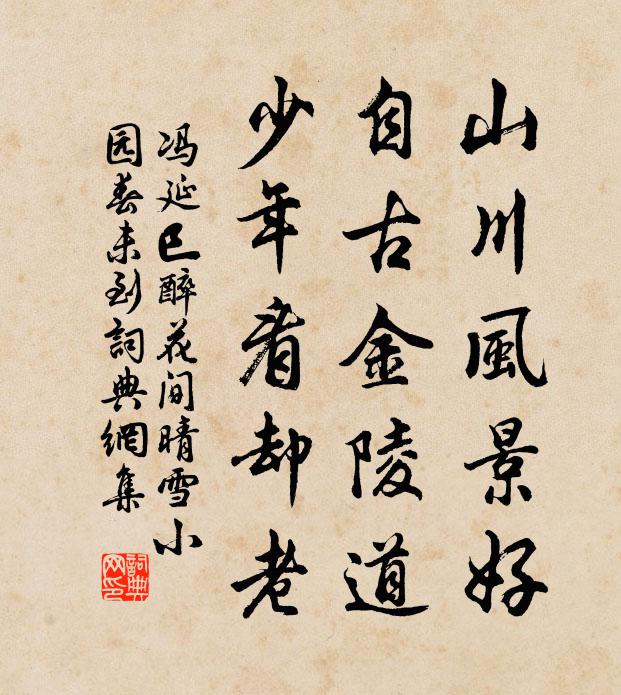 山川風景好
自古金陵道
少年看却老
冯延巳醉花间晴雪小
园春未到詞典網集
詞典
网印